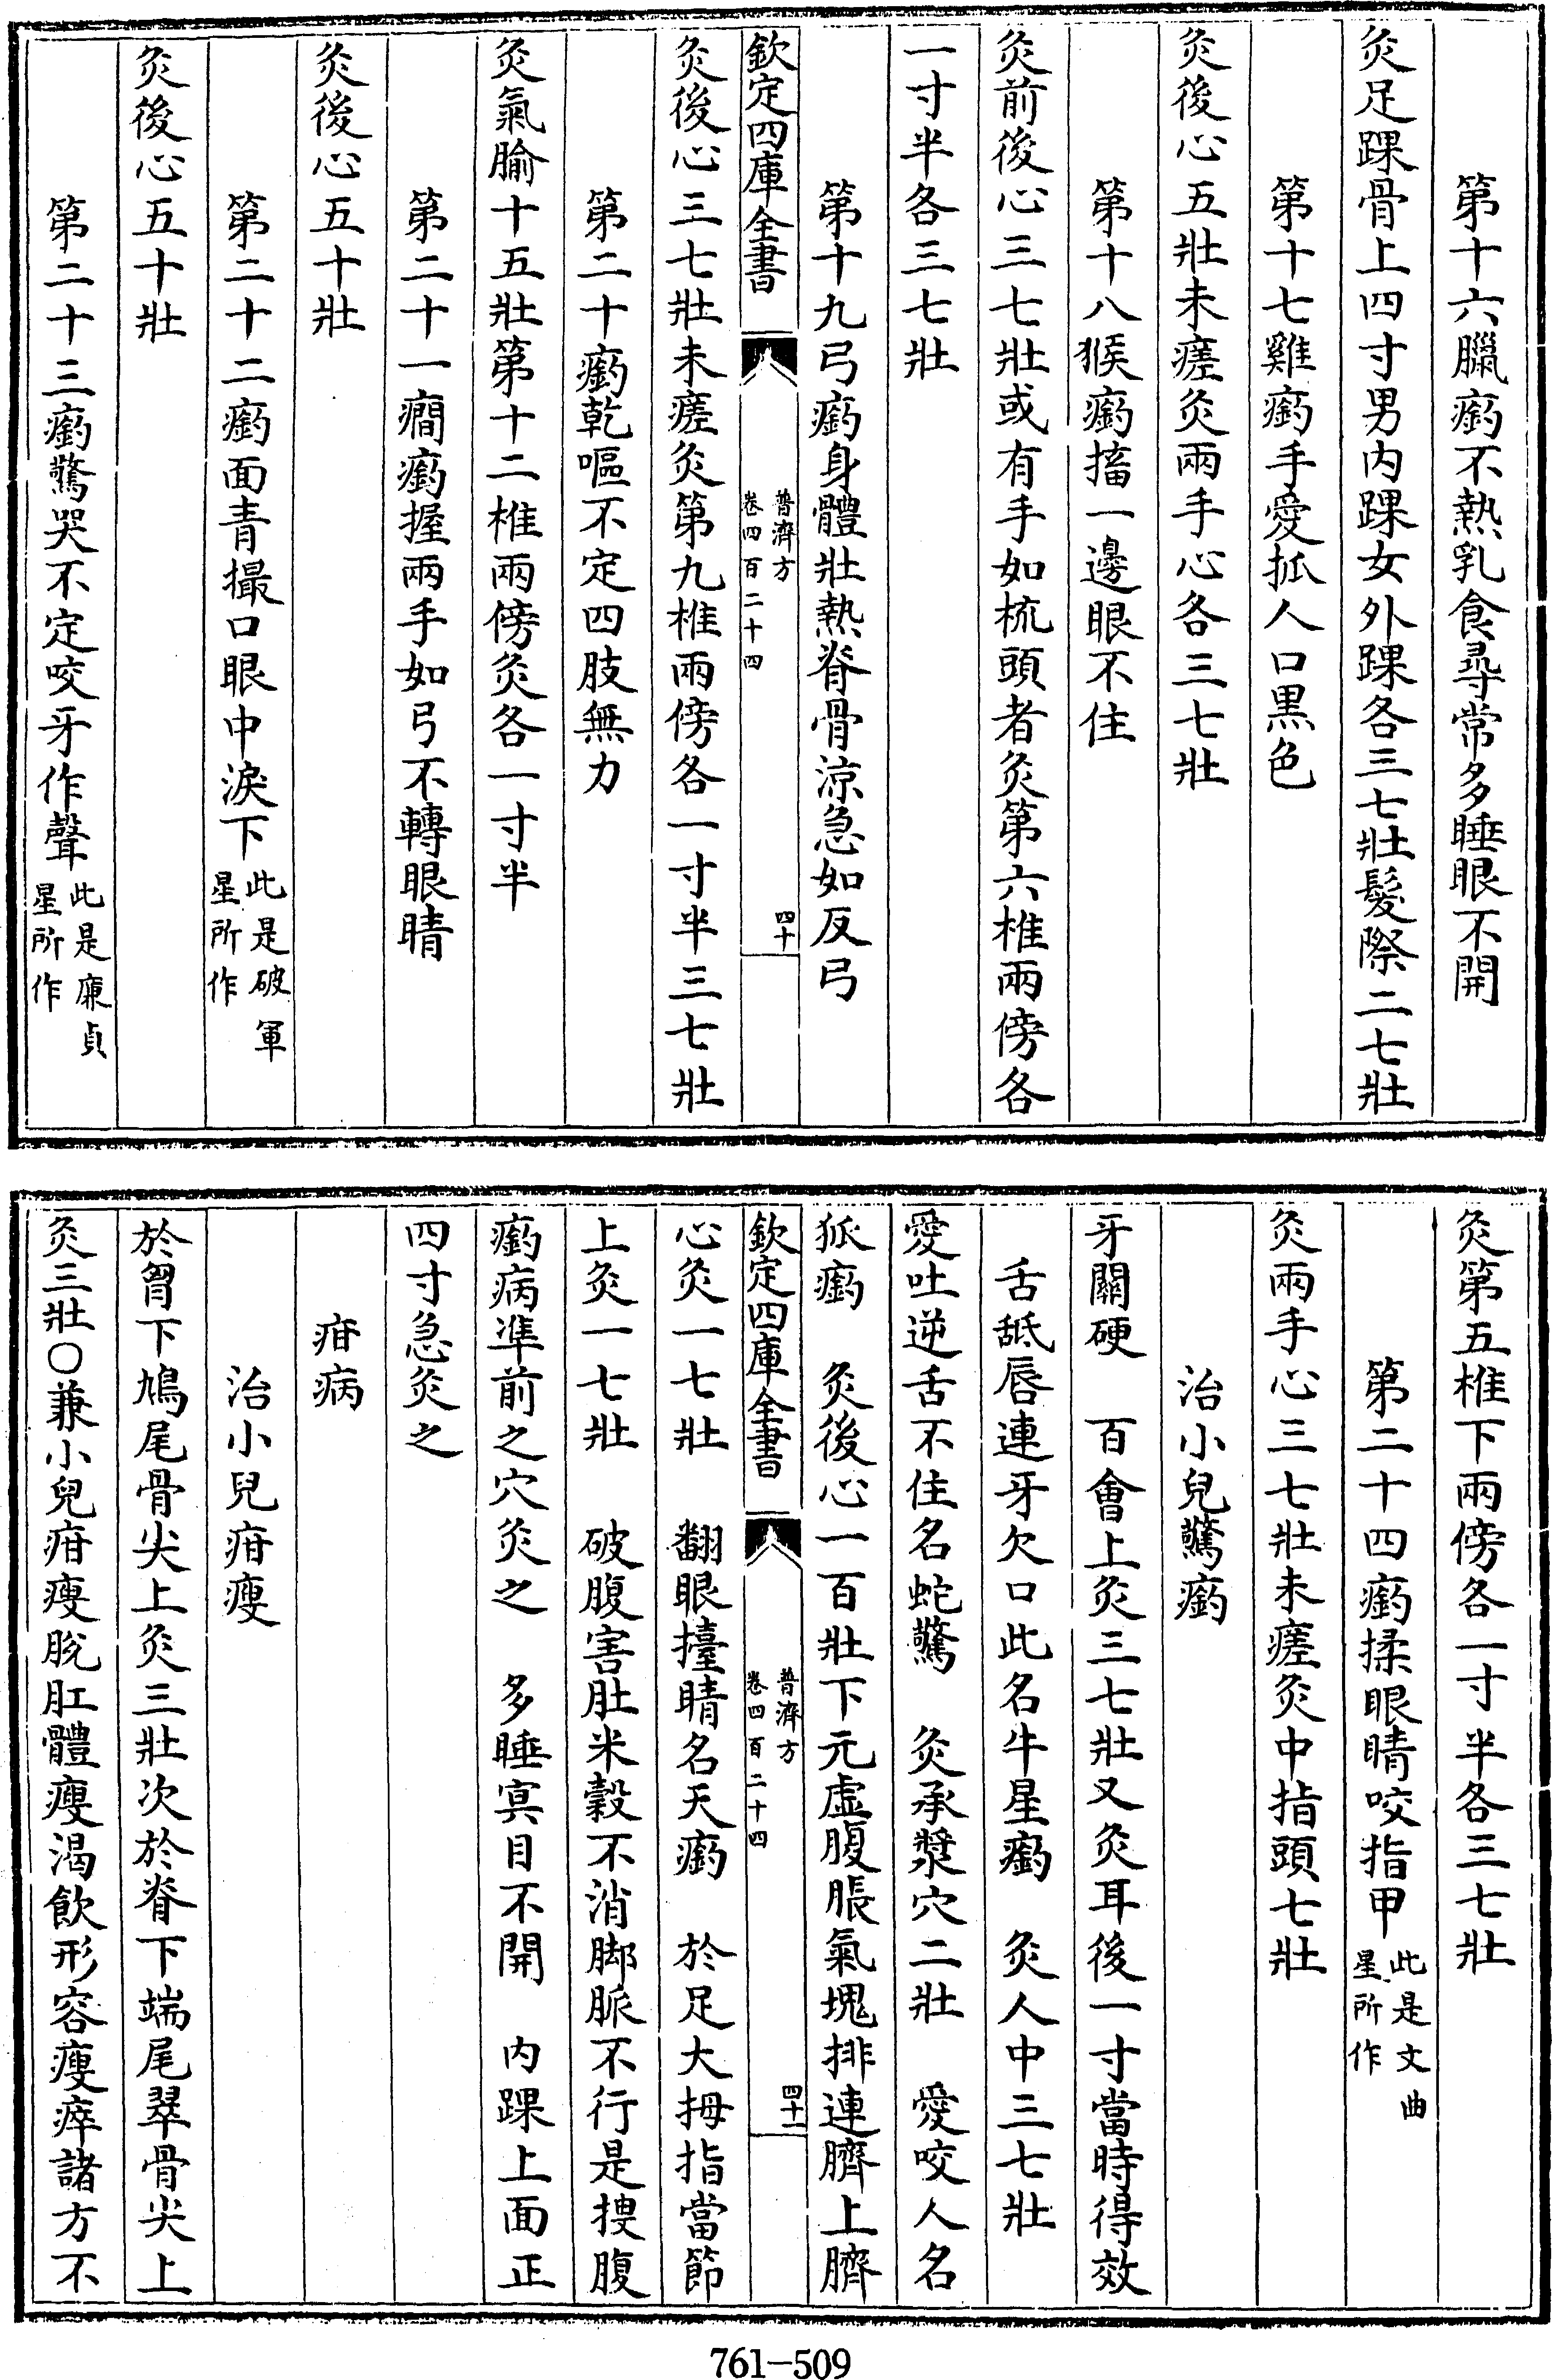 第十六臘㾭不熱乳食尋常多睡眼不開
灸足踝骨上四寸男内踝女外踝各三七壯髮際二七壯
第十七雞㾭手愛抓人口黒色
灸後心五壯未瘥灸兩手心各三七壯
第十八猴㾭搐一邊眼不住
灸前後心三七壯或有手如梳頭者灸第六椎兩傍各
一寸半各三七壯
第十九弓㾭身體壯熱脊骨涼急如反弓
欽定四庫全書
普濟方
卷四百二十四
四十
灸後心三七壯未瘥灸第九椎兩傍各一寸半三七壯
第二十㾭乾嘔不定四肢無力
灸氣腧十五壯第十二椎兩傍灸各一寸半
第二十一癎㾭握兩手如弓不轉眼睛
灸後心五十壯
第二十二㾭面青撮口眼中淚下此是破軍星所作
灸後心五十壯
第二十三㾭驚哭不定咬牙作聲此是廉貞星所作
灸第五椎下兩傍各一寸半各三七壯
第二十四㾭揉眼睛咬指甲此是文曲星所作
灸兩手心三七壯未瘥灸中指頭七壯
治小兒驚㾭
牙關硬　百會上灸三七壯又灸耳後一寸當時得效
舌舐唇連牙欠口此名牛星㾭　灸人中三七壯
愛吐逆舌不住名蛇驚　灸承漿穴二壯　愛咬人名
狐㾭　灸後心一百壯下元虚腹脹氣塊排連臍上臍
欽定四庫全書
普濟方
卷四百二十四
四十一
心灸一七壯　翻眼擡睛名天㾭　於足大拇指當節
上灸一七壯　破腹害肚米穀不消脚脈不行是搜腹
㾭病凖前之穴灸之　多睡㝠目不開　内踝上面正
四寸急灸之
疳病
治小兒疳瘦
於胷下鳩尾骨尖上灸三壯次於脊下端尾翠骨尖上
灸三壯〇兼小兒疳瘦脫肛體瘦渴飲形容瘦瘁諸方不
761-509